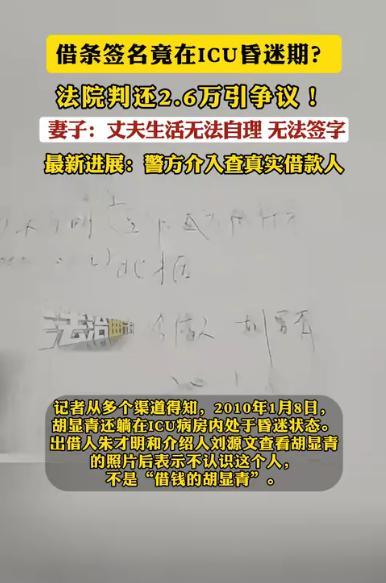 借条签名竟在ICU昏迷期？
法院判还2.6万引争议！
妻子：丈夫生活无法自理 无法签字
最新进展：警方介入查真实借款人
此据
借人 胡显青
法治
记者从多个渠道得知，2010年1月8日，
胡显青还躺在ICU病房内处于昏迷状态。
出借人朱才明和介绍人刘源文查看胡显青
的照片后表示不认识这个人，
不是“借钱的胡显青”。